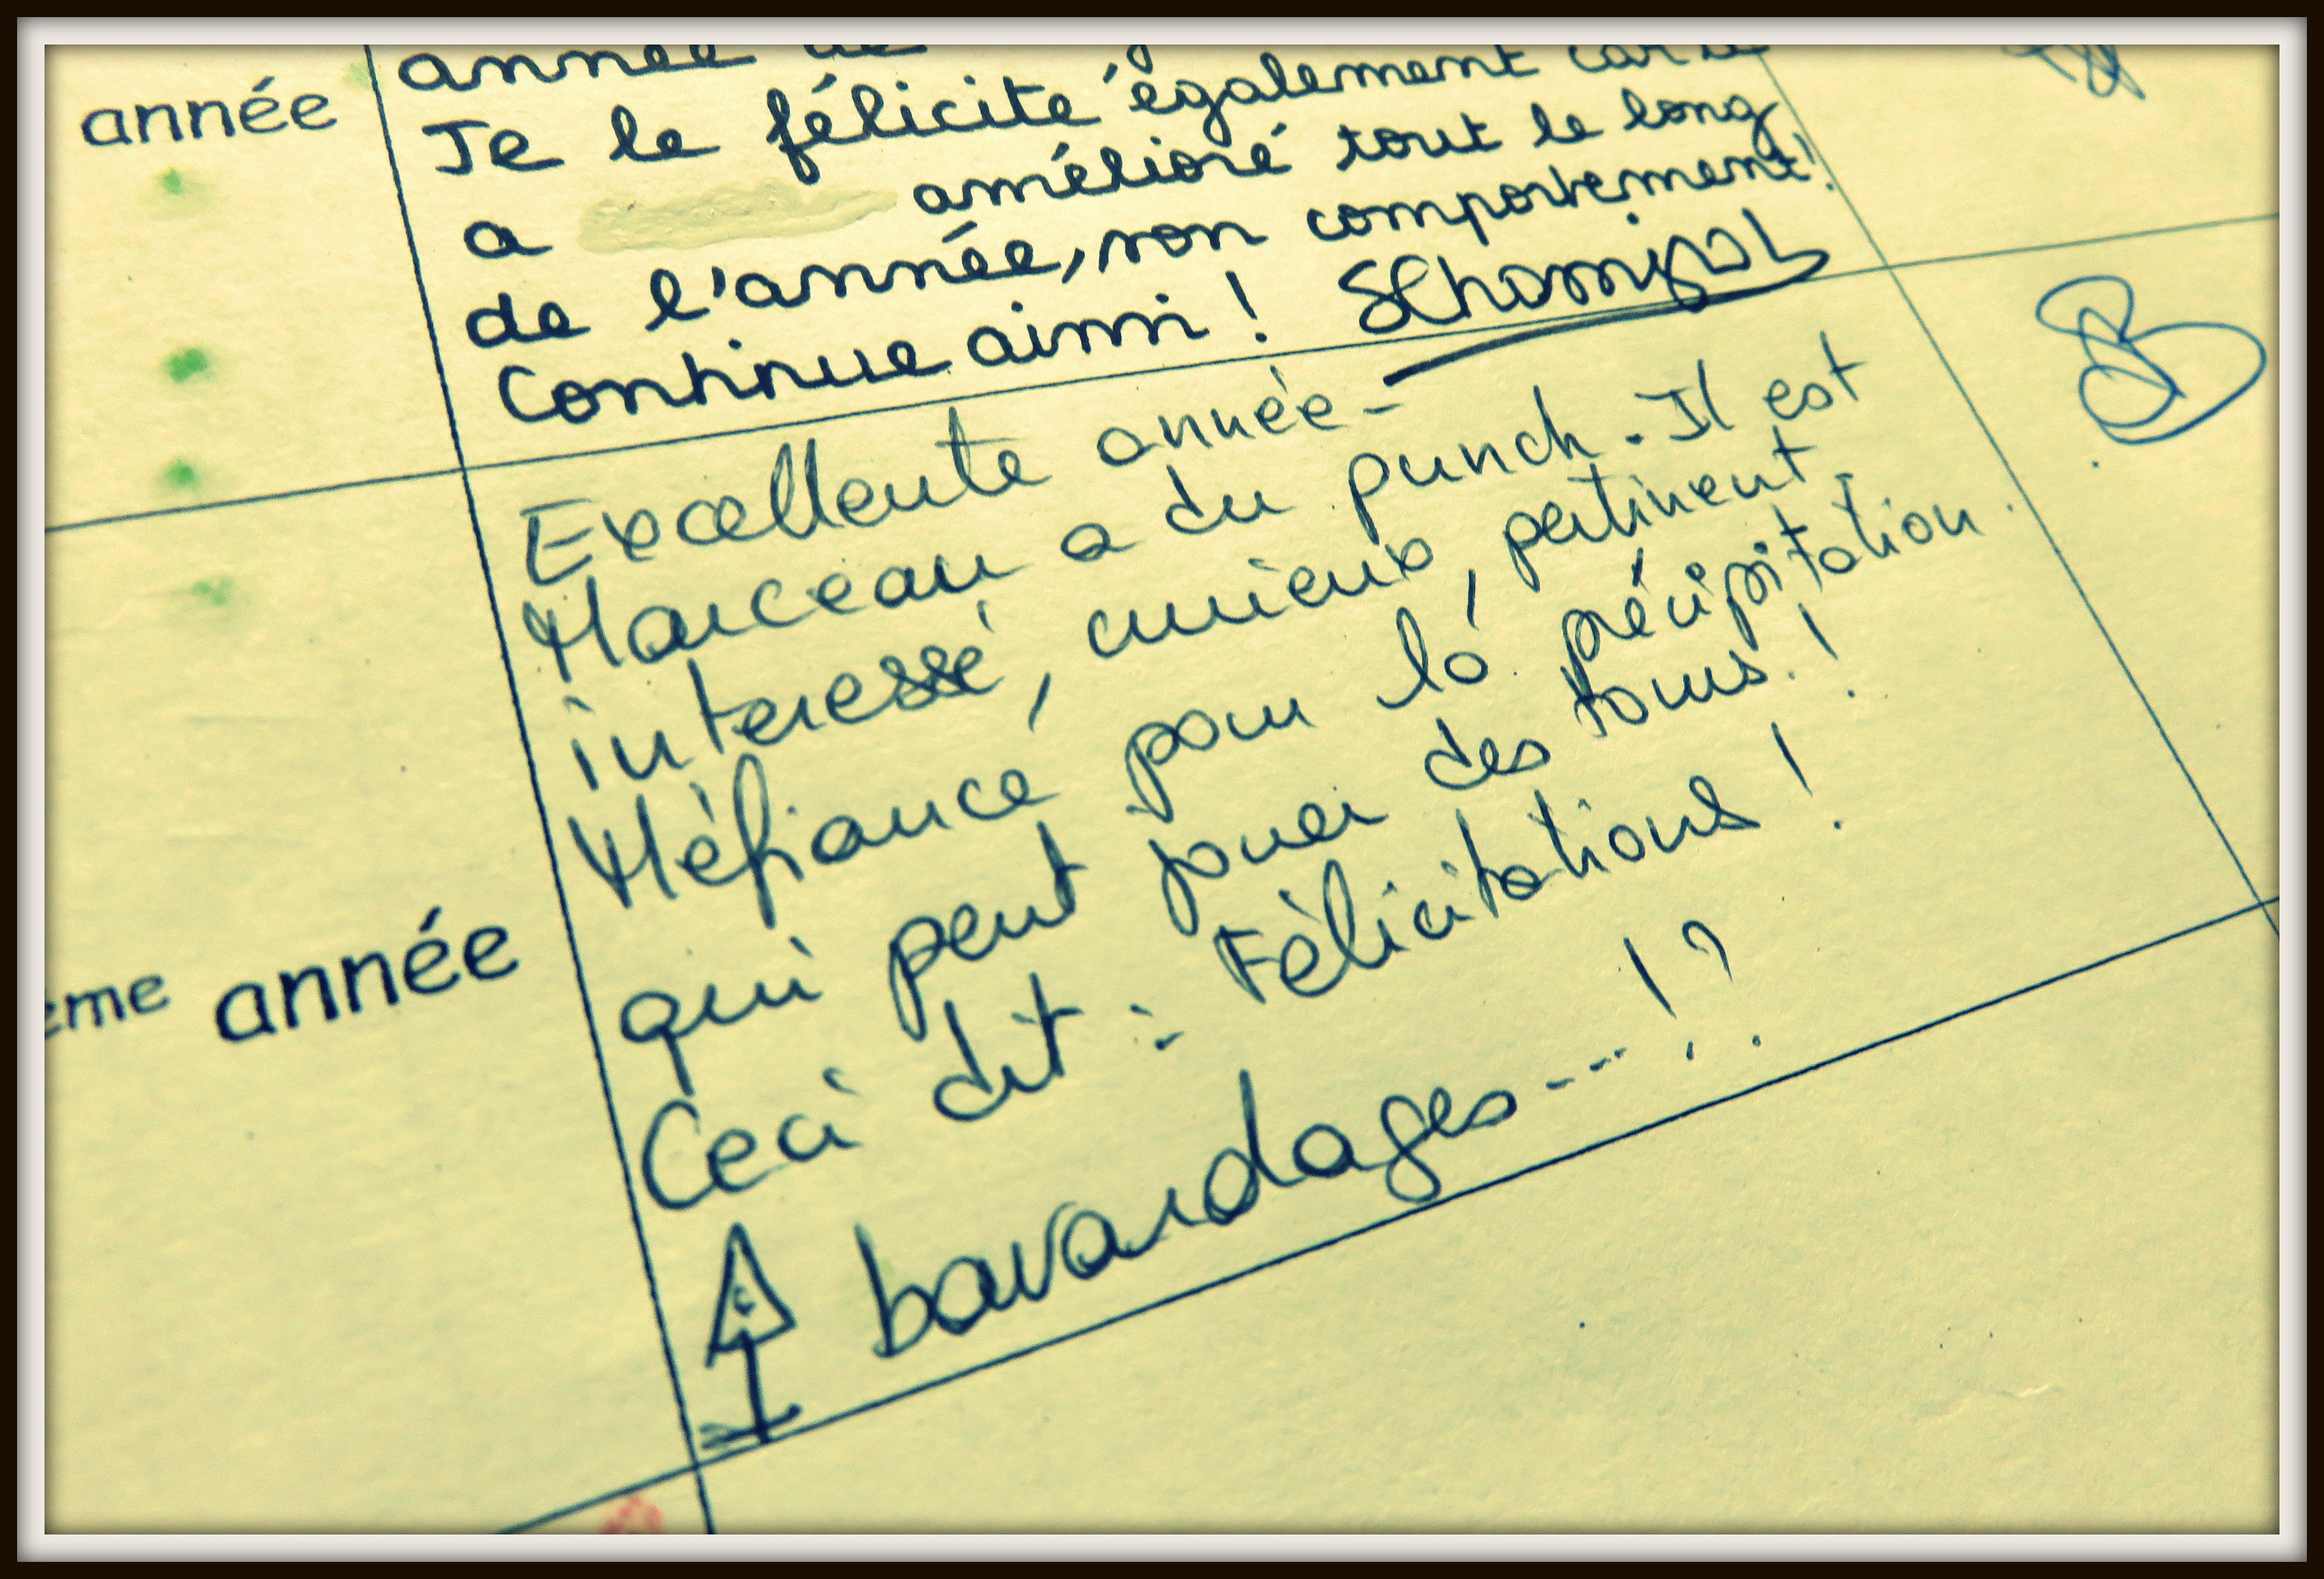 année
année de
Je le félicite également car il
a amélioré tout le long
de l'année, son comportement!
Continue ainsi !
Excellente année-
Marceau a du punch. Il est
interessé, curieux, pertinent.
Méfiance pour la précipitation
qui peut jouer des tours !
Ceci dit : Félicitations !
bavardages...!?
ème année